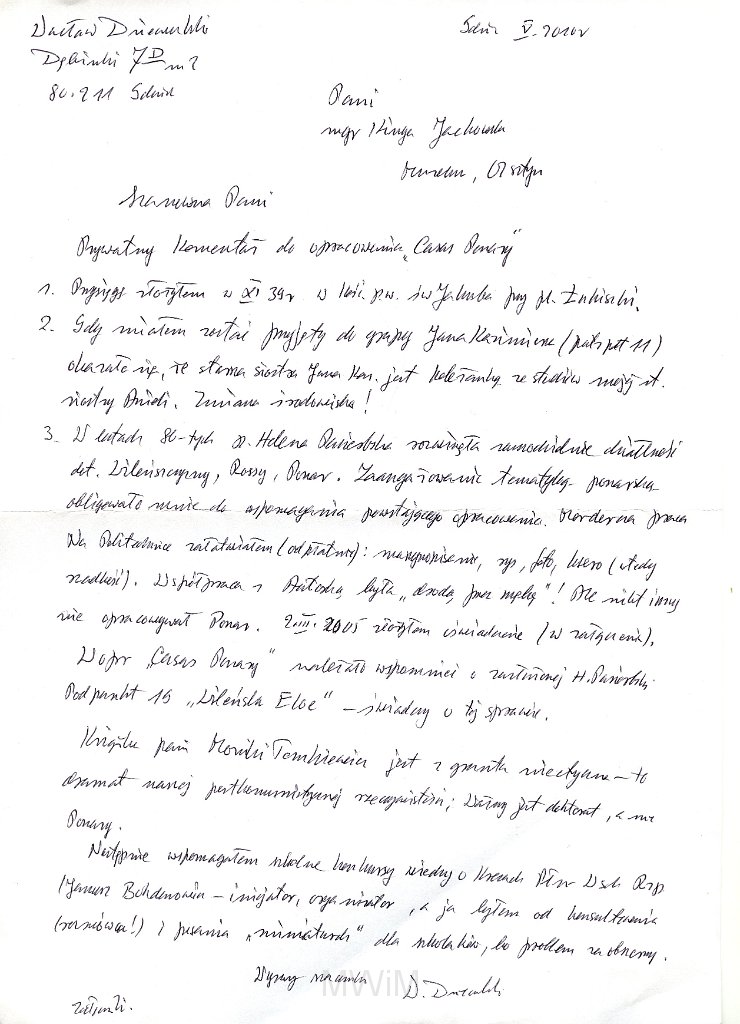 Wacław Dziewulski Gdańsk V.2010r
Dębinki 7D m 2
80-211 Gdańsk
Pani
mgr Kinga Jachowska
Muzeum, Olsztyn
Szanowna Pani
Prywatny komentarz do opracowania „Casus Ponary"
1. Przysięgę złożyłem w XI 39r w Kośc. p.w. św Jakuba przy pl. Łukiskim.
2. Gdy miałem zostać przyjęty do grupy Jana Kazimierza (patrz pkt 11)
okazało się, że starsza siostra Jana Kaz. jest koleżanką ze studiów mojej st.
siostry Anieli. Zmiana środowiska!
3. W latach 80-tych p. Helena Pasierbska rozwinęła samodzielnie działalność
dot. Wileńszczyzny, Rossy, Ponar. Zaangażowanie tematyką ponarską
obligowało mnie do wspomagania powstającego opracowania. Mordercza praca
Na Politechnice załatwiałem (odpłatnie): maszynopisanie, rys, foto, ksero (wtedy
rzadkość). Współpraca z Autorką była „drogą przez mękę"! Ale nikt inny
nie opracowywał Ponar. 2.III.2005 złożyłem oświadczenie (w załączeniu).
W opr „Casus Ponary" należało wspomnieć o zasłużonej H. Pasierbskiej
Podpunkt 15 „Wileńska Eloe" – świadczy o tej sprawie.
Książka pani Moniki Tomkiewicz jest z gruntu nieetyczna – to
dramat naszej postkomunistycznej rzeczywistości; Ważny jest doktorat, a nie
Ponary.
Następnie wspomagałem szkolne konkursy wiedzy o Kresach Płn Wsch Rzp
(Janusz Bohdanowicz – inicjator, organizator, a ja byłem od konsultowania
(rozmówca!) i pisania „miniaturek" dla szkolaków, bo problem za obszerny.
Wyrazy szacunku W. Dziewulski
MWiM